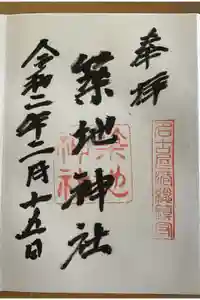 奉拝
名古屋港総鎮守
築地神社
築地
神社
令和二年二月十五日